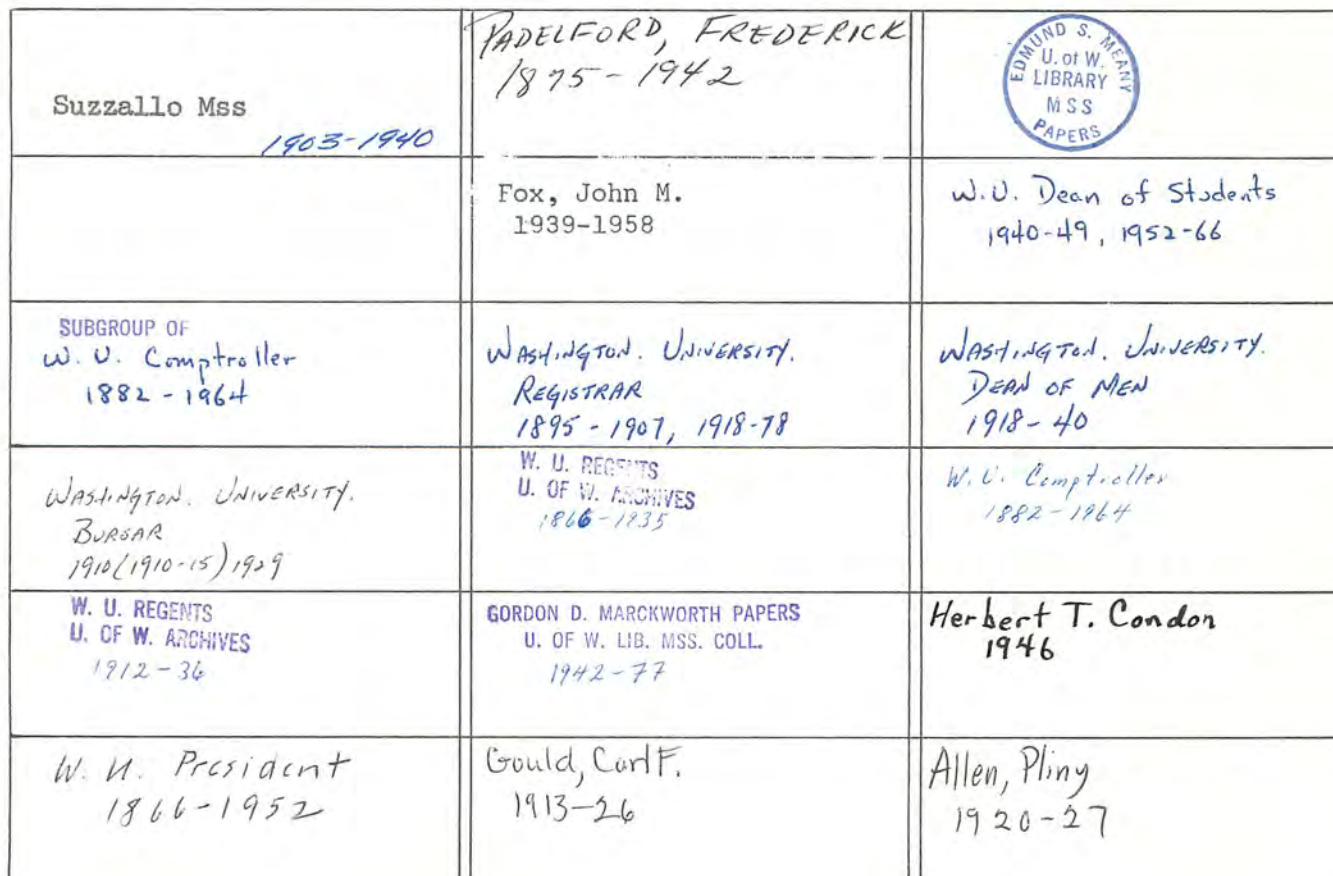 Suzzallo Mss
1903-1940
PADELFORD, FREDERICK
1875-1942
EDMUND S. MEANY
U. of W.
LIBRARY
MSS
PAPERS
Fox, John M.
1939-1958
W.U. Dean of Students
1940-49, 1952-66
SUBGROUP OF
W. U. Comptroller
1882-1964
WASHINGTON. UNIVERSITY.
REGISTRAR
1895-1907, 1918-78
WASHINGTON. UNIVERSITY.
DEAN OF MEN
1918-40
WASHINGTON. UNIVERSITY.
BURSAR
1910(1910-15)1929
W. U. REGENTS
U. OF W. ARCHIVES
1866-1935
W. U. Comptroller
1882-1964
W. U. REGENTS
U. OF W. ARCHIVES
1912-36
GORDON D. MARCKWORTH PAPERS
U. OF W. LIB. MSS. COLL.
1942-77
Herbert T. Condon
1946
W. U. President
1866-1952
Gould, Carl F.
1913-26
Allen, Pliny
1920-27